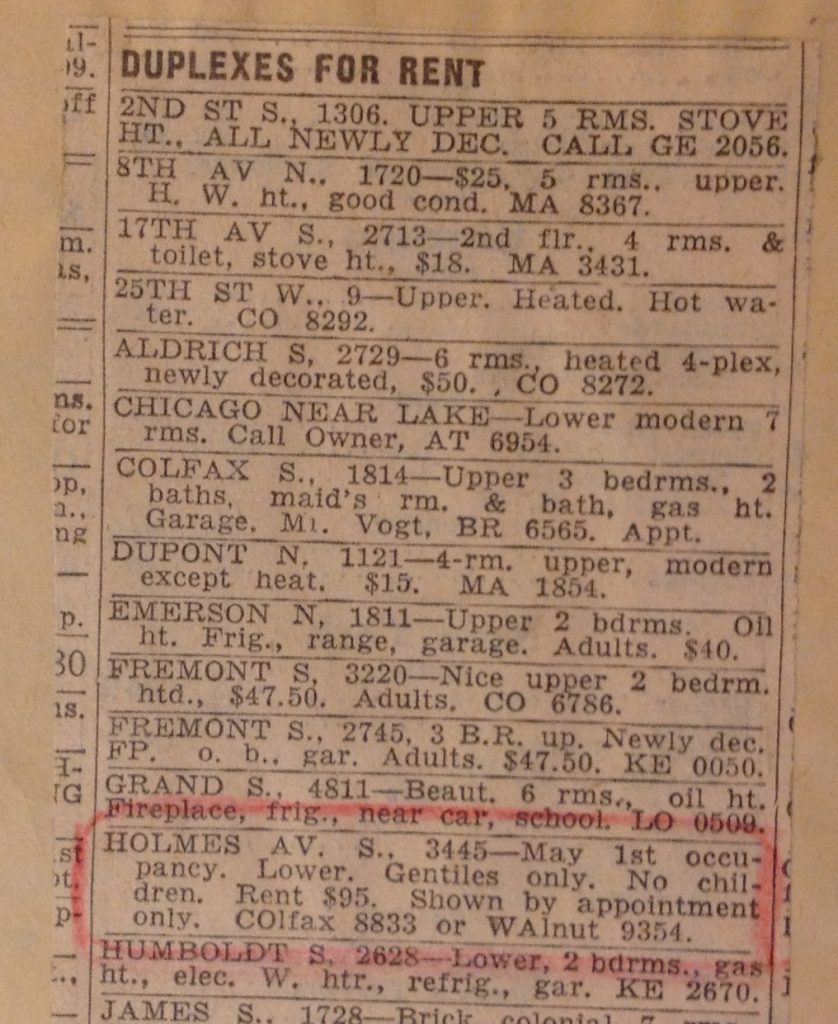 DUPLEXES FOR RENT
2ND ST S., 1306. UPPER 5 RMS. STOVE
HT., ALL NEWLY DEC. CALL GE 2056.
8TH AV N., 1720—$25, 5 rms., upper.
H. W. ht., good cond. MA 8367.
17TH AV S., 2713—2nd flr., 4 rms. &
toilet, stove ht., $18. MA 3431.
25TH ST W., 9—Upper. Heated. Hot wa-
ter. CO 8292.
ALDRICH S, 2729—6 rms., heated 4-plex,
newly decorated, $50. CO 8272.
CHICAGO NEAR LAKE—Lower modern 7
rms. Call Owner, AT 6954.
COLFAX S., 1814—Upper 3 bedrms., 2
baths, maid's rm. & bath, gas ht.
Garage. Mr. Vogt, BR 6565. Appt.
DUPONT N, 1121—4-rm. upper, modern
except heat. $15. MA 1854.
EMERSON N, 1811—Upper 2 bdrms. Oil
ht. Frig., range, garage. Adults. $40.
FREMONT S, 3220—Nice upper 2 bedrm.
htd., $47.50. Adults. CO 6786.
FREMONT S., 2745, 3 B.R. up. Newly dec.
FP. o. b., gar. Adults. $47.50. KE 0050.
GRAND S., 4811—Beaut. 6 rms., oil ht.
Fireplace, frig., near car, school. LO 0509.
HOLMES AV. S., 3445—May 1st occu-
pancy. Lower. Gentiles only. No chil-
dren. Rent $95. Shown by appointment
only. COlfax 8833 or WAlnut 9354.
HUMBOLDT S, 2628—Lower, 2 bdrms., gas
ht., elec. W. htr., refrig., gar. KE 2670.
JAMES S., 1728—Brick colonial 7